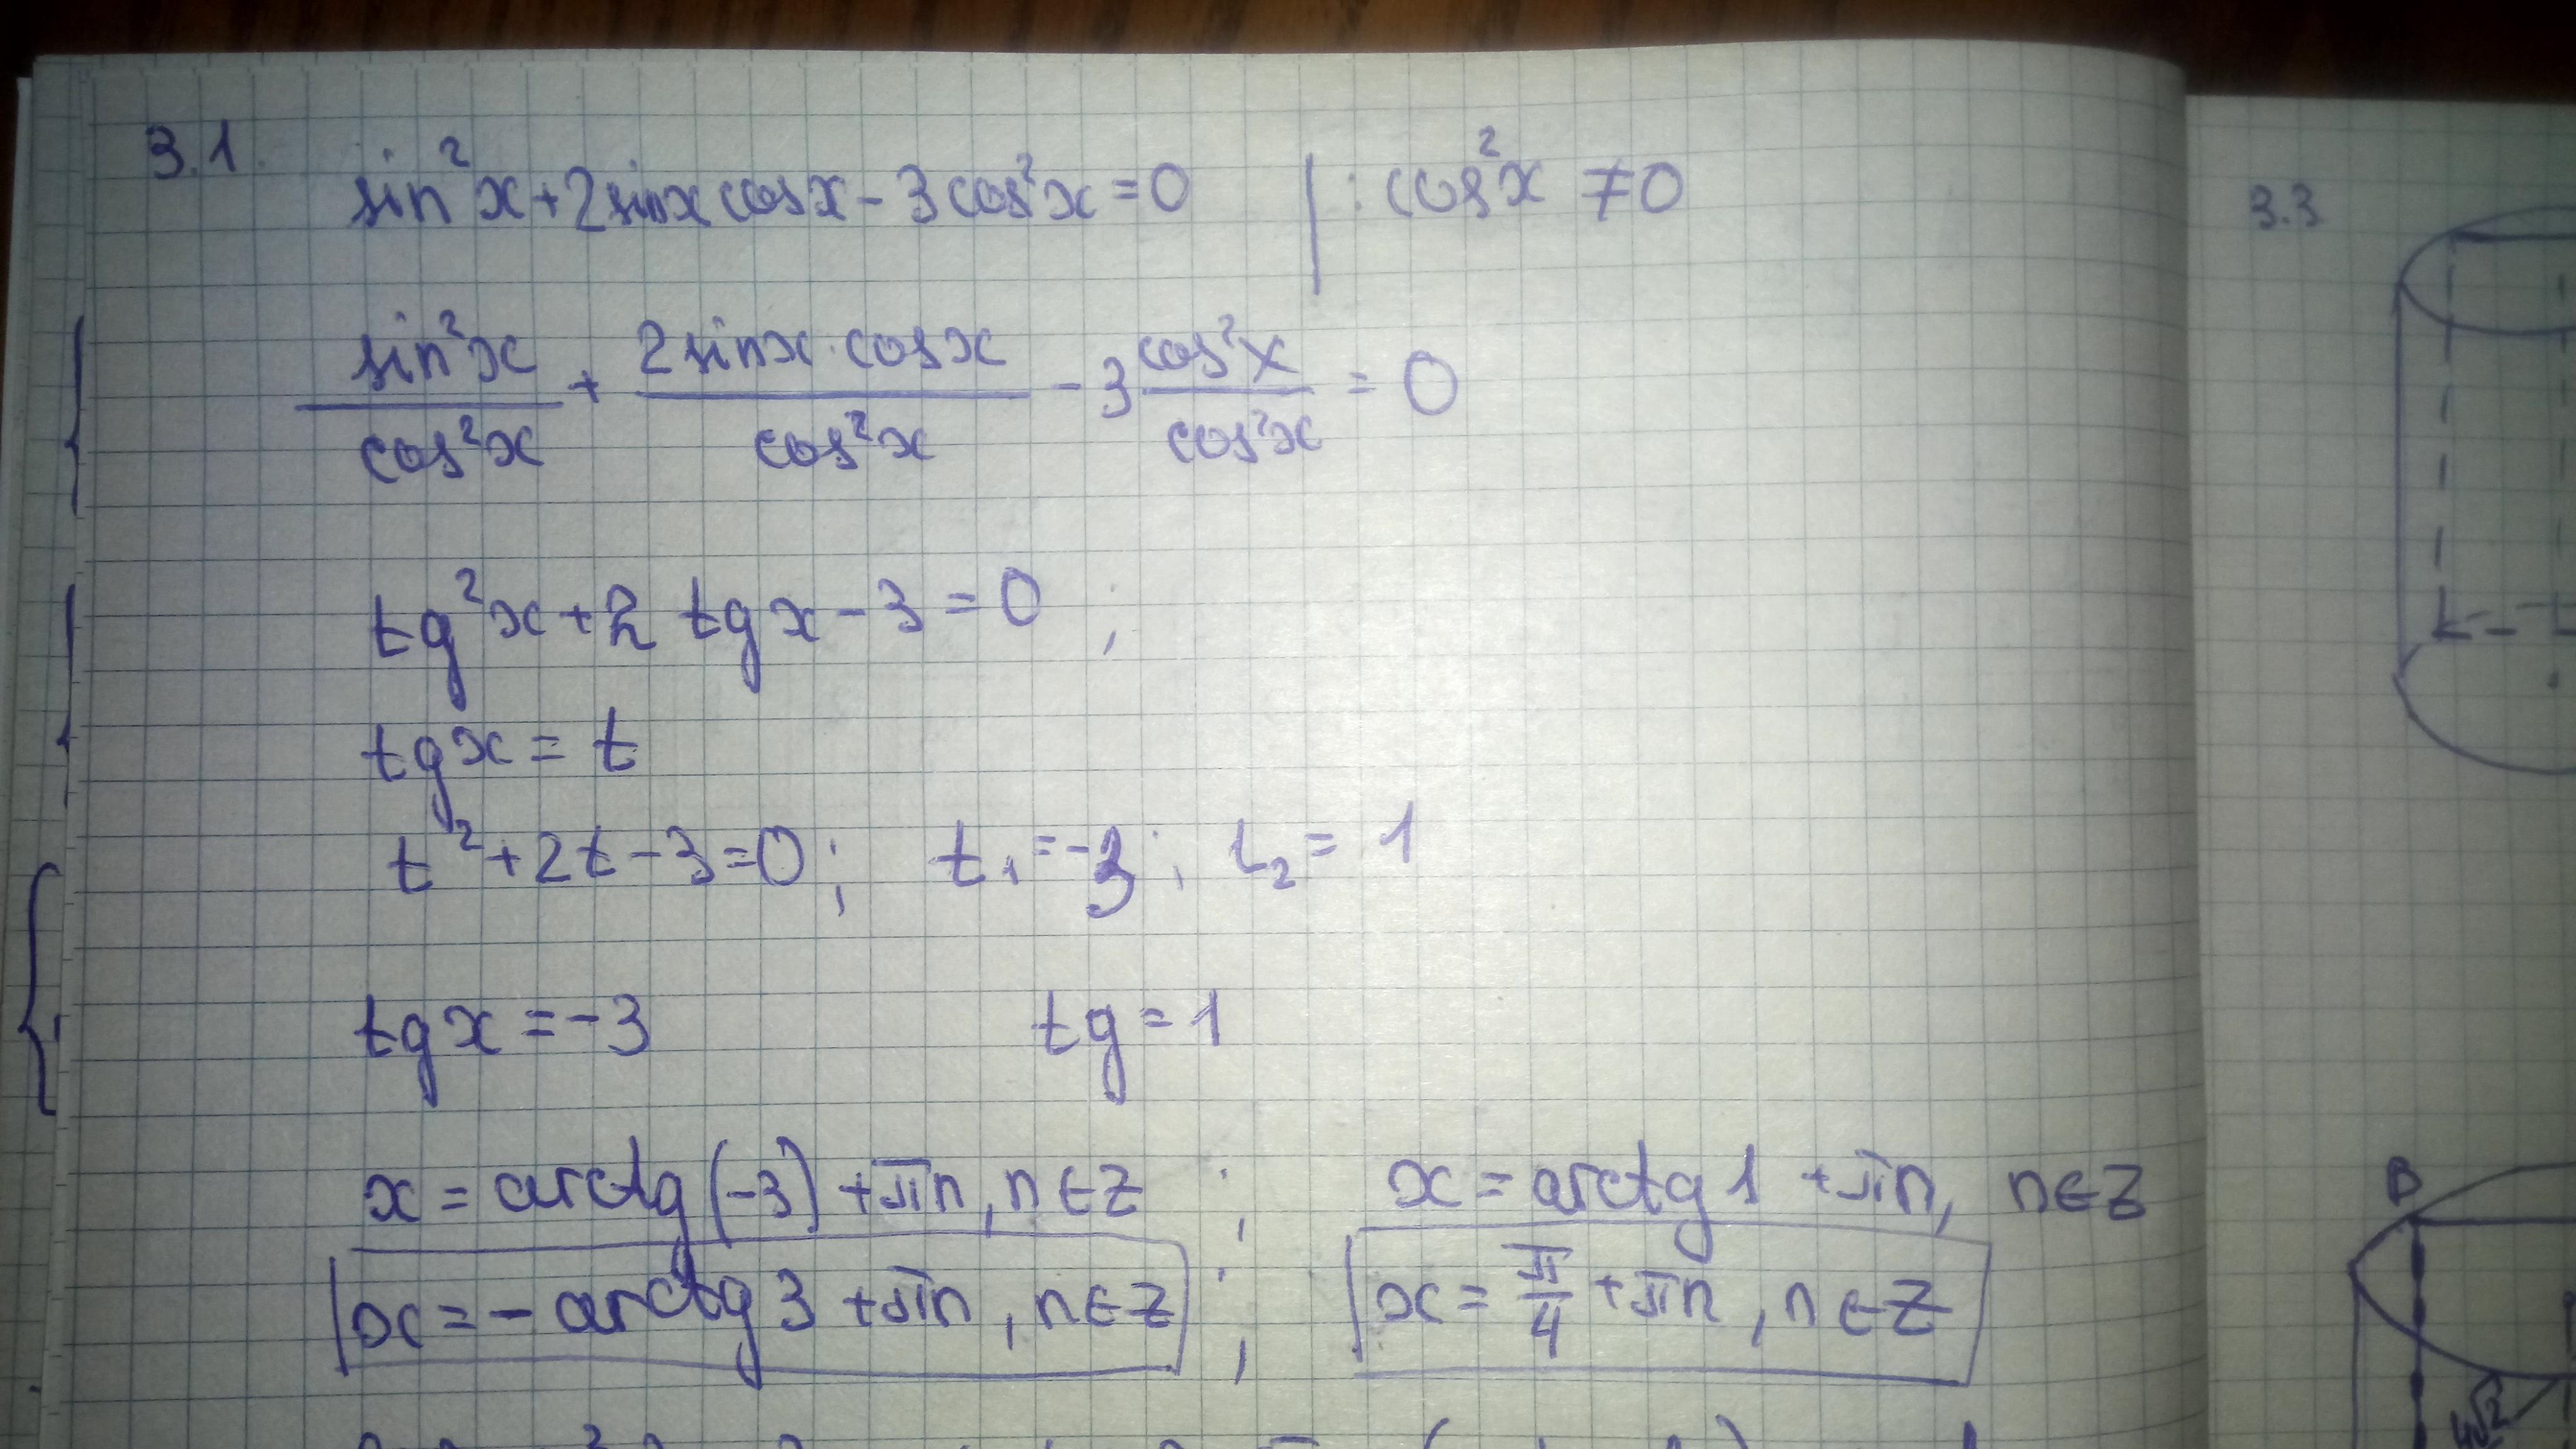 3.1. sin²x + 2sinx cosx - 3cos²x = 0 | : cos²x ≠ 0
sin²x/cos²x + 2sinx·cosx/cos²x - 3 cos²x/cos²x = 0
tg²x + 2 tgx - 3 = 0;
tgx = t
t² + 2t - 3 = 0; t₁ = -3; t₂ = 1
tgx = -3 tg = 1
x = arctg(-3) + πn, n∈Z; x = arctg1 + πn, n∈Z
x = - arctg3 + πn, n∈Z; x = π/4 + πn, n∈Z
3.3
4√2